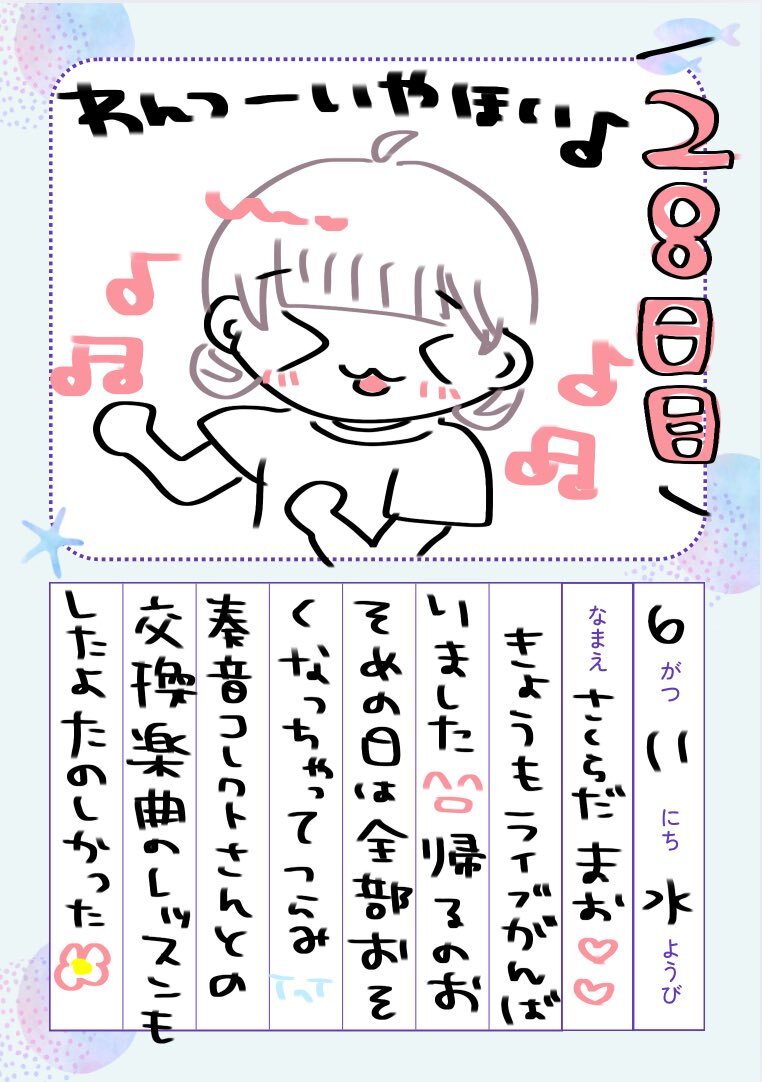 わんつーいやほい♪
28日目
6がつ11にち水ようび
なまえ さくらだ まお♡♡
きょうもライブがんば
りました 帰るのお
そめの日は全部おそ
くなっちゃってつらみ
奏音コレクトさんとの
交換楽曲のレッスンも
したよたのしかった